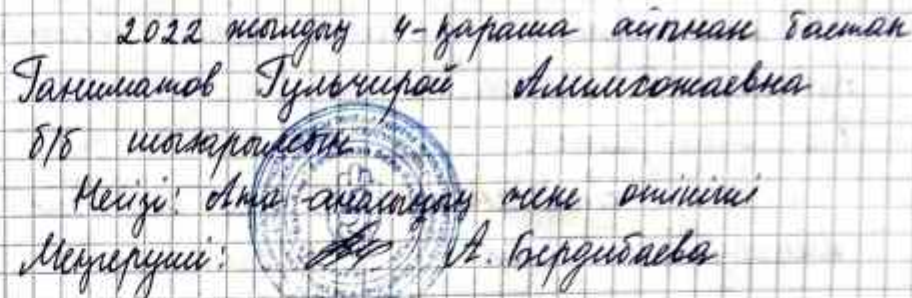 2022 жылдың 4-қараша айынан бастап
Ганиматов Гульчирой Алимхожаевна
б/б шығарылсын
Негізі: Ата-анасының жеке өтініші
Меңгеруші: А. Бердибаева